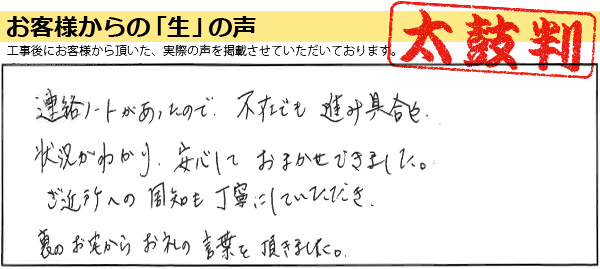 お客様からの「生」の声
工事後にお客様から頂いた、実際の声を掲載させていただいております。
太鼓判
連絡ノートがあったので、不在でも進み具合や、
状況がわかり、安心しておまかせできました。
ご近所への周知も丁寧にしていただき、
裏のお宅からお礼の言葉を頂きました。